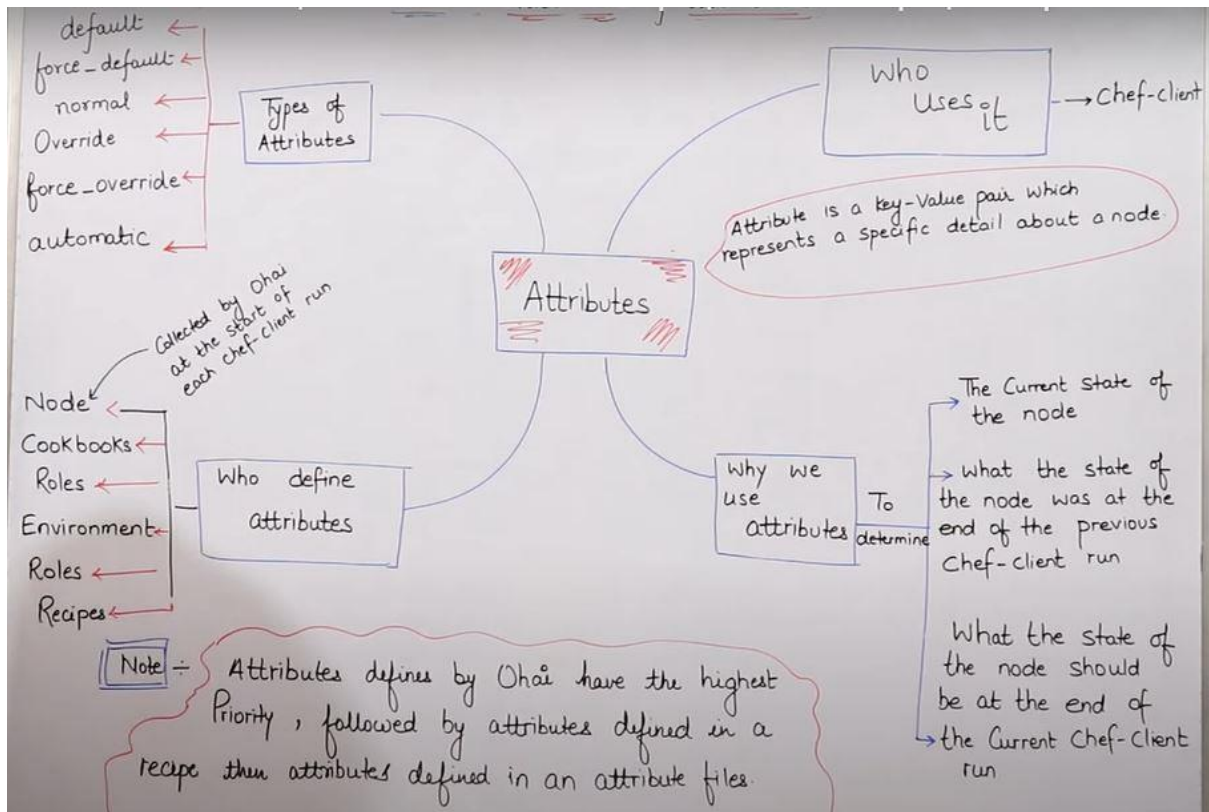 default
force_default
normal
Override
force_override
automatic
Types of
Attributes
Who
Uses it
Chef-client
Attribute is a key-Value pair which
represents a specific detail about a node.
Attributes
Collected by Ohai
at the start of
each Chef-client run
Node
Cookbooks
Roles
Environment
Roles
Recipes
Who define
attributes
Why we
use
attributes
To
determine
The Current state of
the node
What the state of
the node was at the
end of the previous
Chef-client run
What the state of
the node should
be at the end of
the Current Chef-client
run
Note ÷
Attributes defines by Ohai have the highest
Priority, followed by attributes defined in a
recipe then attributes defined in an attribute files.